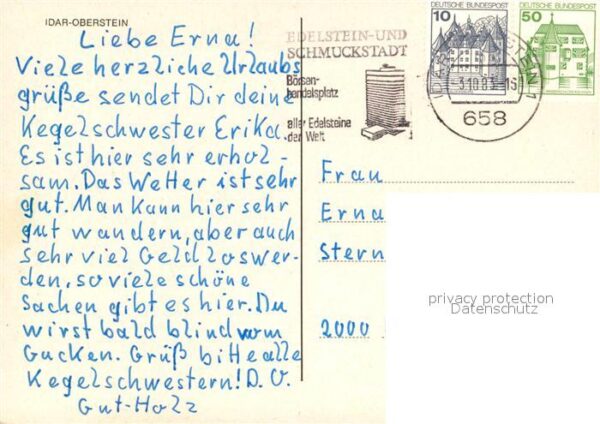 IDAR-OBERSTEIN
Liebe Erna!
Viele herzliche Urlaubs
grüße sendet Dir deine
Kegelschwester Erika.
Es ist hier sehr erhol-
sam. Das Wetter ist sehr
gut. Man kann hier sehr
gut wandern, aber auch
sehr viel Geld loswer-
den, so viele schöne
Sachen gibt es hier. Du
wirst bald blind vom
Gucken. Grüß bitte alle
Kegelschwestern! D. O.
Gut-Holz
EDELSTEIN-UND
SCHMUCKSTADT
Börsen-
handelsplatz
aller Edelsteine
der Welt
10 DEUTSCHE BUNDESPOST
50 DEUTSCHE BUNDESPOST
IDAR-OBERSTEIN 1
-3.10.83-15
658
Frau
Erna
Stern
2000
privacy protection
Datenschutz